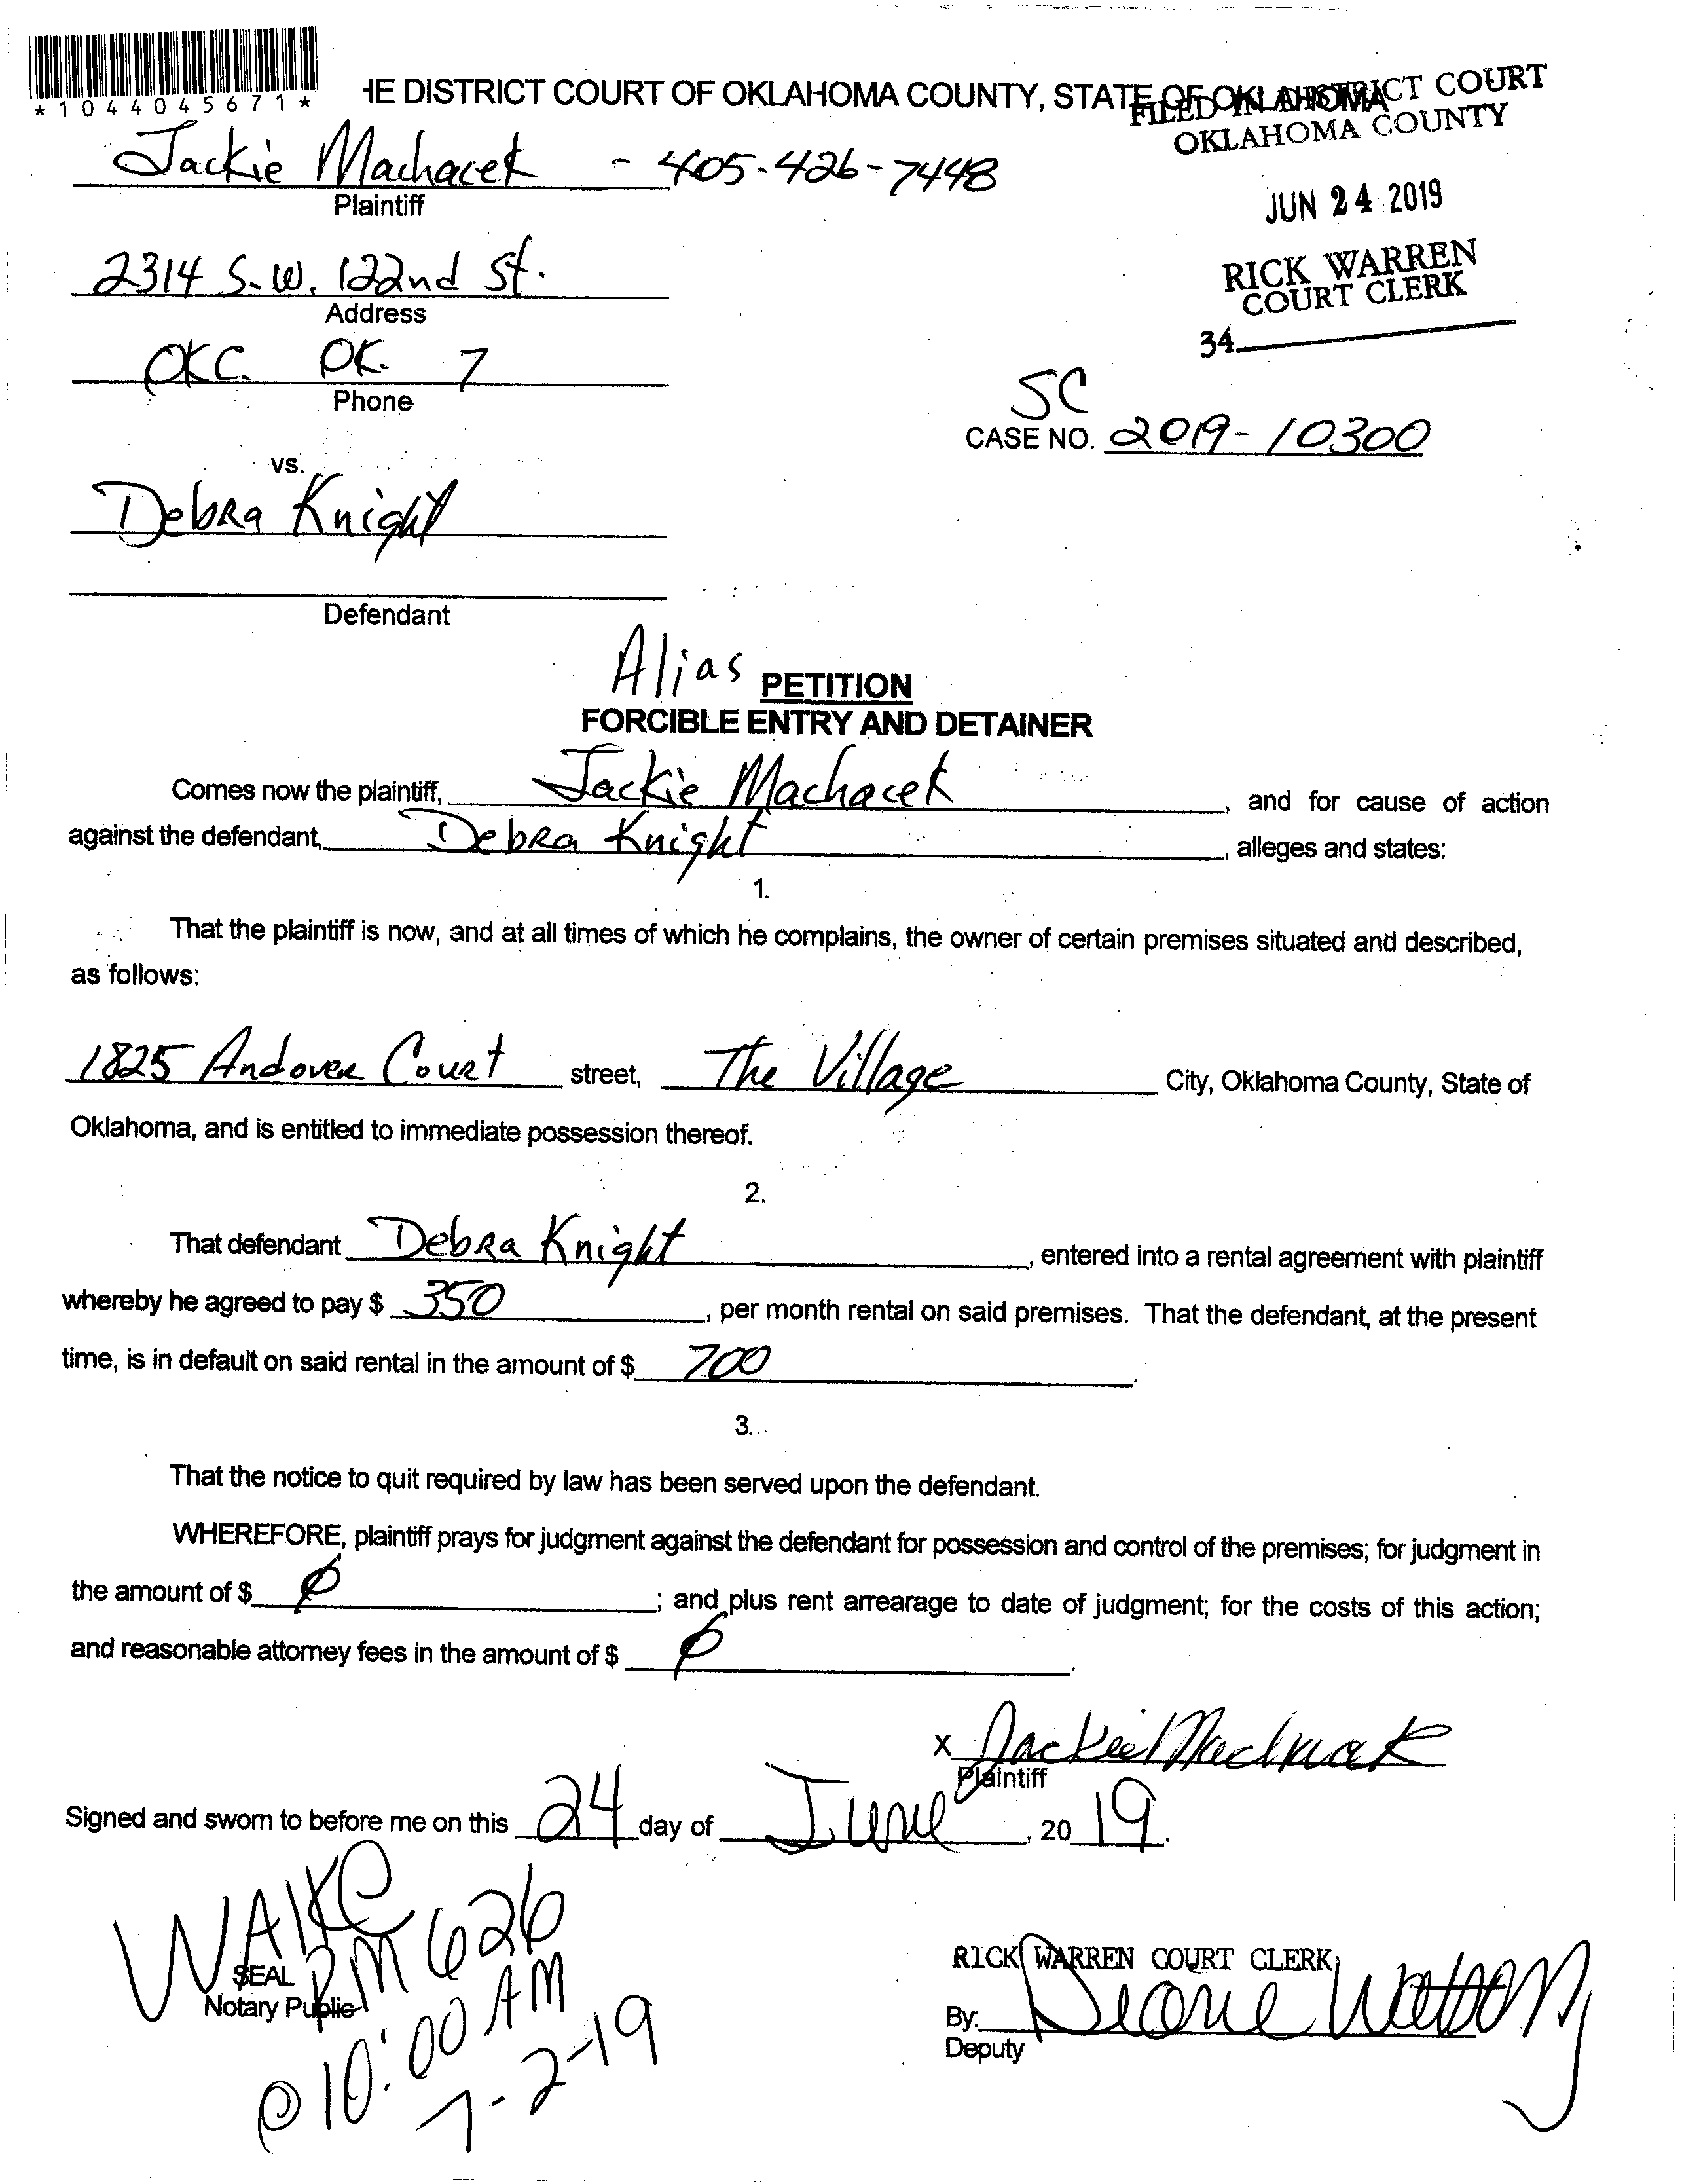 *1044045671*
HE DISTRICT COURT OF OKLAHOMA COUNTY, STATE OF OKLAHOMA
FILED IN DISTRICT COURT
OKLAHOMA COUNTY
Jackie Machacek - 405-426-7448
Plaintiff
JUN 24 2019
2314 S.W. 122nd St.
Address
RICK WARREN
COURT CLERK
34
OKC. OK. 7
Phone
SC
CASE NO. 2019-10300
vs.
Debra Knight
Defendant
Alias PETITION
FORCIBLE ENTRY AND DETAINER
Comes now the plaintiff, Jackie Machacek, and for cause of action
against the defendant, Debra Knight, alleges and states:
1.
That the plaintiff is now, and at all times of which he complains, the owner of certain premises situated and described,
as follows:
1825 Andover Court street, The Village City, Oklahoma County, State of
Oklahoma, and is entitled to immediate possession thereof.
2.
That defendant Debra Knight, entered into a rental agreement with plaintiff
whereby he agreed to pay $ 350, per month rental on said premises. That the defendant, at the present
time, is in default on said rental in the amount of $ 700.
3.
That the notice to quit required by law has been served upon the defendant.
WHEREFORE, plaintiff prays for judgment against the defendant for possession and control of the premises; for judgment in
the amount of $ ∅; and plus rent arrearage to date of judgment; for the costs of this action;
and reasonable attorney fees in the amount of $ ∅.
X Jackie Machacek
Plaintiff
Signed and sworn to before me on this 24 day of June, 2019.
RM 626
SEAL
Notary Public
@ 10:00 AM
7-2-19
RICK WARREN COURT CLERK
By:
Deputy